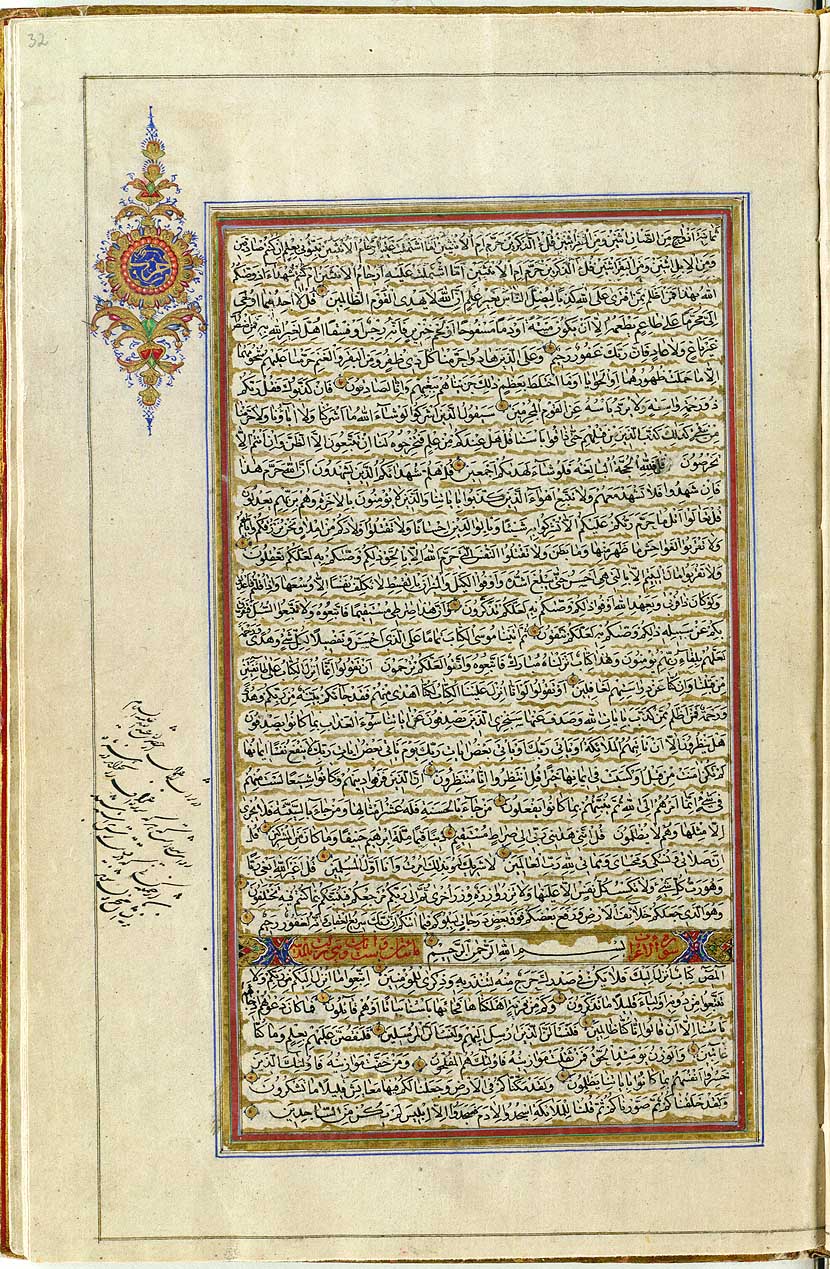 حزب
ثمانية ازواج من الضأن اثنين ومن المعز اثنين قل آلذكرين حرم ام الانثيين اما اشتملت عليه ارحام الانثيين نبئوني بعلم ان كنتم صادقين
ومن الابل اثنين ومن البقر اثنين قل آلذكرين حرم ام الانثيين اما اشتملت عليه ارحام الانثيين ام كنتم شهداء اذ وصيكم
الله بهذا فمن اظلم ممن افترى على الله كذبا ليضل الناس بغير علم ان الله لا يهدي القوم الظالمين قل لا اجد فيما اوحي
الي محرما على طاعم يطعمه الا ان يكون ميتة او دما مسفوحا او لحم خنزير فانه رجس او فسقا اهل لغير الله به فمن اضطر
غير باغ ولا عاد فان ربك غفور رحيم وعلى الذين هادوا حرمنا كل ذي ظفر ومن البقر والغنم حرمنا عليهم شحومهما
الا ما حملت ظهورهما او الحوايا او ما اختلط بعظم ذلك جزيناهم ببغيهم وانا لصادقون فان كذبوك فقل ربكم
ذو رحمة واسعة ولا يرد بأسه عن القوم المجرمين سيقول الذين اشركوا لو شاء الله ما اشركنا ولا اباؤنا ولا حرمنا
من شيء كذلك كذب الذين من قبلهم حتى ذاقوا بأسنا قل هل عندكم من علم فتخرجوه لنا ان تتبعون الا الظن وان انتم الا
تخرصون قل فلله الحجة البالغة فلو شاء لهديكم اجمعين قل هلم شهداءكم الذين يشهدون ان الله حرم هذا
فان شهدوا فلا تشهد معهم ولا تتبع اهواء الذين كذبوا باياتنا والذين لا يؤمنون بالاخرة وهم بربهم يعدلون
قل تعالوا اتل ما حرم ربكم عليكم الا تشركوا به شيئا وبالوالدين احسانا ولا تقتلوا اولادكم من املاق نحن نرزقكم واياهم
ولا تقربوا الفواحش ما ظهر منها وما بطن ولا تقتلوا النفس التي حرم الله الا بالحق ذلكم وصيكم به لعلكم تعقلون
ولا تقربوا مال اليتيم الا بالتي هي احسن حتى يبلغ اشده واوفوا الكيل والميزان بالقسط لا نكلف نفسا الا وسعها واذا قلتم فاعدلوا
ولو كان ذا قربى وبعهد الله اوفوا ذلكم وصيكم به لعلكم تذكرون وان هذا صراطي مستقيما فاتبعوه ولا تتبعوا السبل فتفرق
بكم عن سبيله ذلكم وصيكم به لعلكم تتقون ثم اتينا موسى الكتاب تماما على الذي احسن وتفصيلا لكل شيء وهدى ورحمة
لعلهم بلقاء ربهم يؤمنون وهذا كتاب انزلناه مبارك فاتبعوه واتقوا لعلكم ترحمون ان تقولوا انما انزل الكتاب على طائفتين
من قبلنا وان كنا عن دراستهم لغافلين او تقولوا لو انا انزل علينا الكتاب لكنا اهدى منهم فقد جاءكم بينة من ربكم وهدى
ورحمة فمن اظلم ممن كذب بايات الله وصدف عنها سنجزي الذين يصدفون عن اياتنا سوء العذاب بما كانوا يصدفون
هل ينظرون الا ان تأتيهم الملائكة او يأتي ربك او يأتي بعض ايات ربك يوم يأتي بعض ايات ربك لا ينفع نفسا ايمانها
لم تكن امنت من قبل او كسبت في ايمانها خيرا قل انتظروا انا منتظرون ان الذين فرقوا دينهم وكانوا شيعا لست منهم
في شيء انما امرهم الى الله ثم ينبئهم بما كانوا يفعلون من جاء بالحسنة فله عشر امثالها ومن جاء بالسيئة فلا يجزى
الا مثلها وهم لا يظلمون قل انني هديني ربي الى صراط مستقيم دينا قيما ملة ابرهيم حنيفا وما كان من المشركين قل
ان صلاتي ونسكي ومحياي ومماتي لله رب العالمين لا شريك له وبذلك امرت وانا اول المسلمين قل اغير الله ابغي ربا
وهو رب كل شيء ولا تكسب كل نفس الا عليها ولا تزر وازرة وزر اخرى ثم الى ربكم مرجعكم فينبئكم بما كنتم فيه تختلفون
وهو الذي جعلكم خلائف الارض ورفع بعضكم فوق بعض درجات ليبلوكم فيما اتيكم ان ربك سريع العقاب وانه لغفور رحيم
سورة الاعراف بسم الله الرحمن الرحيم
المص كتاب انزل اليك فلا يكن في صدرك حرج منه لتنذر به وذكرى للمؤمنين اتبعوا ما انزل اليكم من ربكم ولا
تتبعوا من دونه اولياء قليلا ما تذكرون وكم من قرية اهلكناها فجاءها بأسنا بياتا او هم قائلون فما كان دعويهم اذ جاءهم
بأسنا الا ان قالوا انا كنا ظالمين فلنسئلن الذين ارسل اليهم ولنسئلن المرسلين فلنقصن عليهم بعلم وما كنا
غائبين والوزن يومئذ الحق فمن ثقلت موازينه فاولئك هم المفلحون ومن خفت موازينه فاولئك الذين
خسروا انفسهم بما كانوا باياتنا يظلمون ولقد مكناكم في الارض وجعلنا لكم فيها معايش قليلا ما تشكرون
ولقد خلقناكم ثم صورناكم ثم قلنا للملائكة اسجدوا لادم فسجدوا الا ابليس لم يكن من الساجدين
32